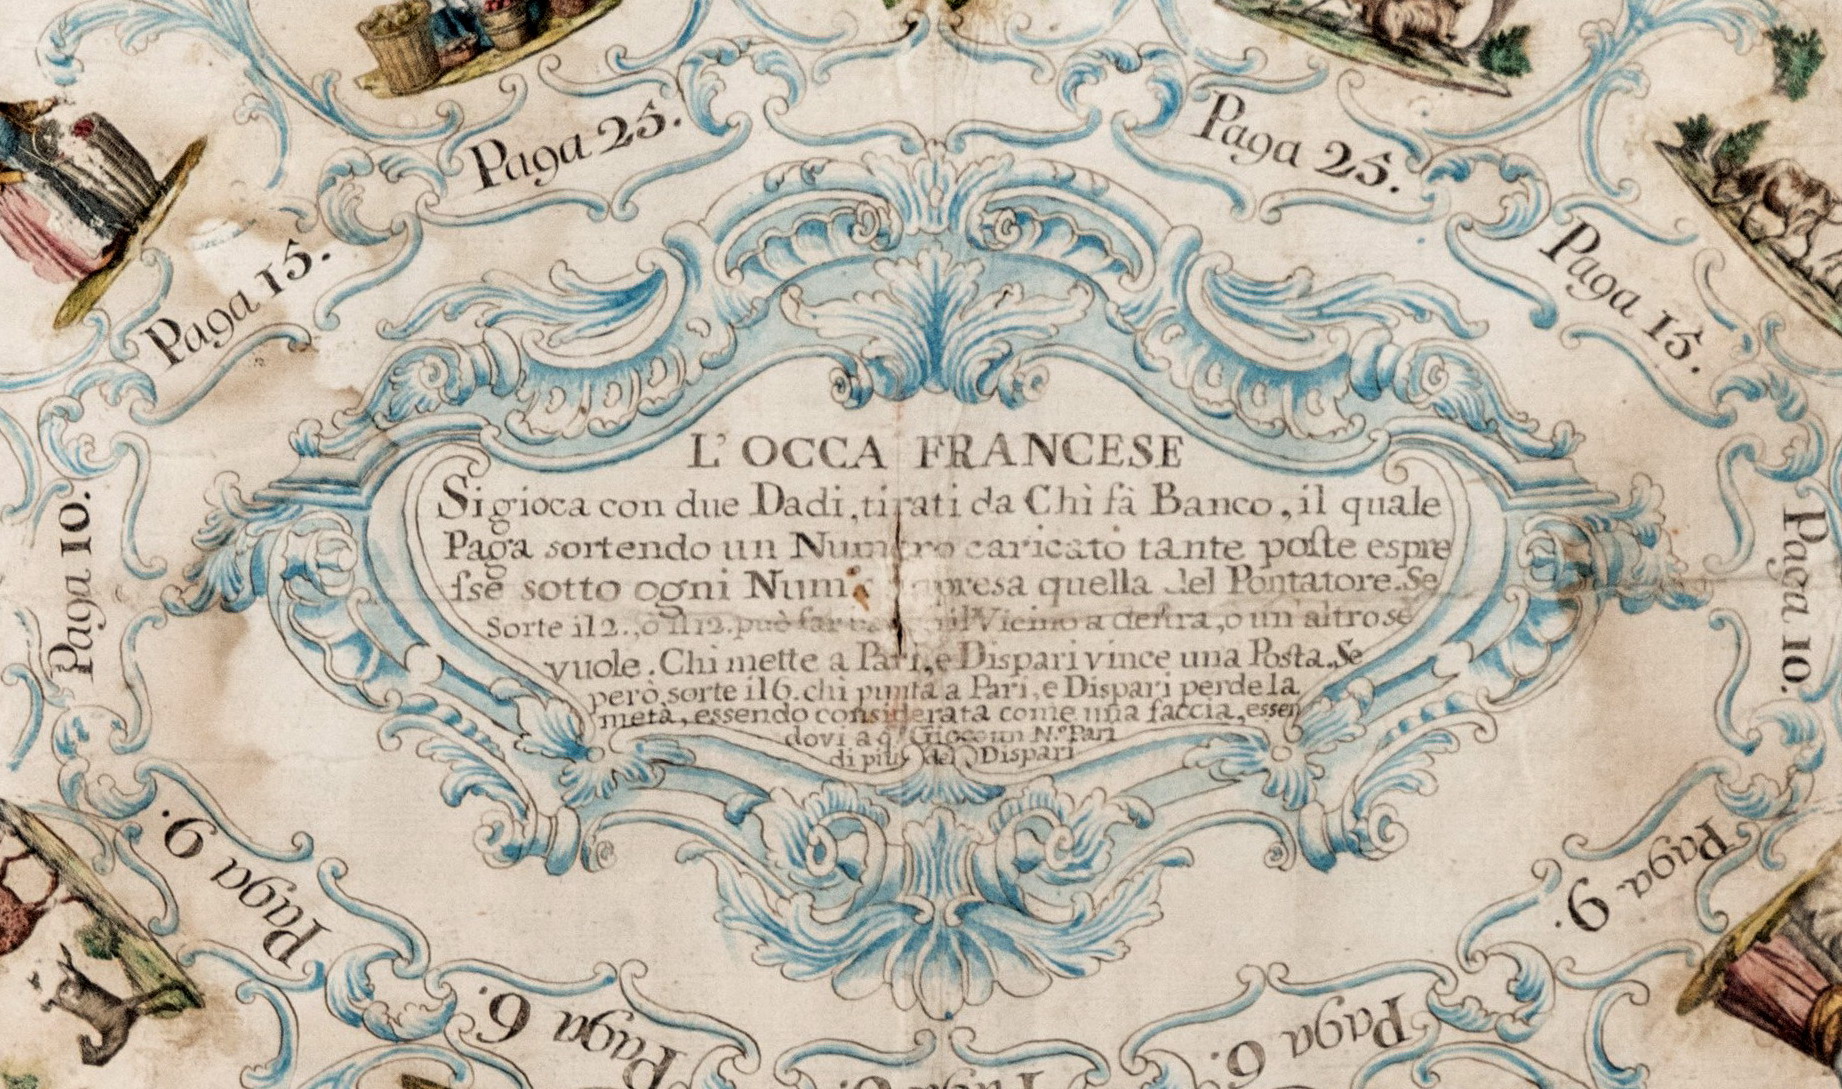 Paga 25.
Paga 25.
Paga 15.
Paga 15.
Paga 10.
Paga 10.
L'OCCA FRANCESE
Si gioca con due Dadi, tirati da Chì fà Banco, il quale
Paga sortendo un Numero caricato tante poste espre
sse sotto ogni Num.º presa quella del Pontatore. Se
Sorte il 2., ò il 12. può far il Vicino a destra, o un altro se
vuole. Chi mette a Pari, e Dispari vince una Posta. Se
però sorte il 6. chì punta a Pari, e Dispari perde la
metà, essendo considerata come una faccia, essen
dovi a q.º Gioco un N.º Pari
di più del Dispari
Paga 9.
Paga 9.
Paga 6.
Paga 6.